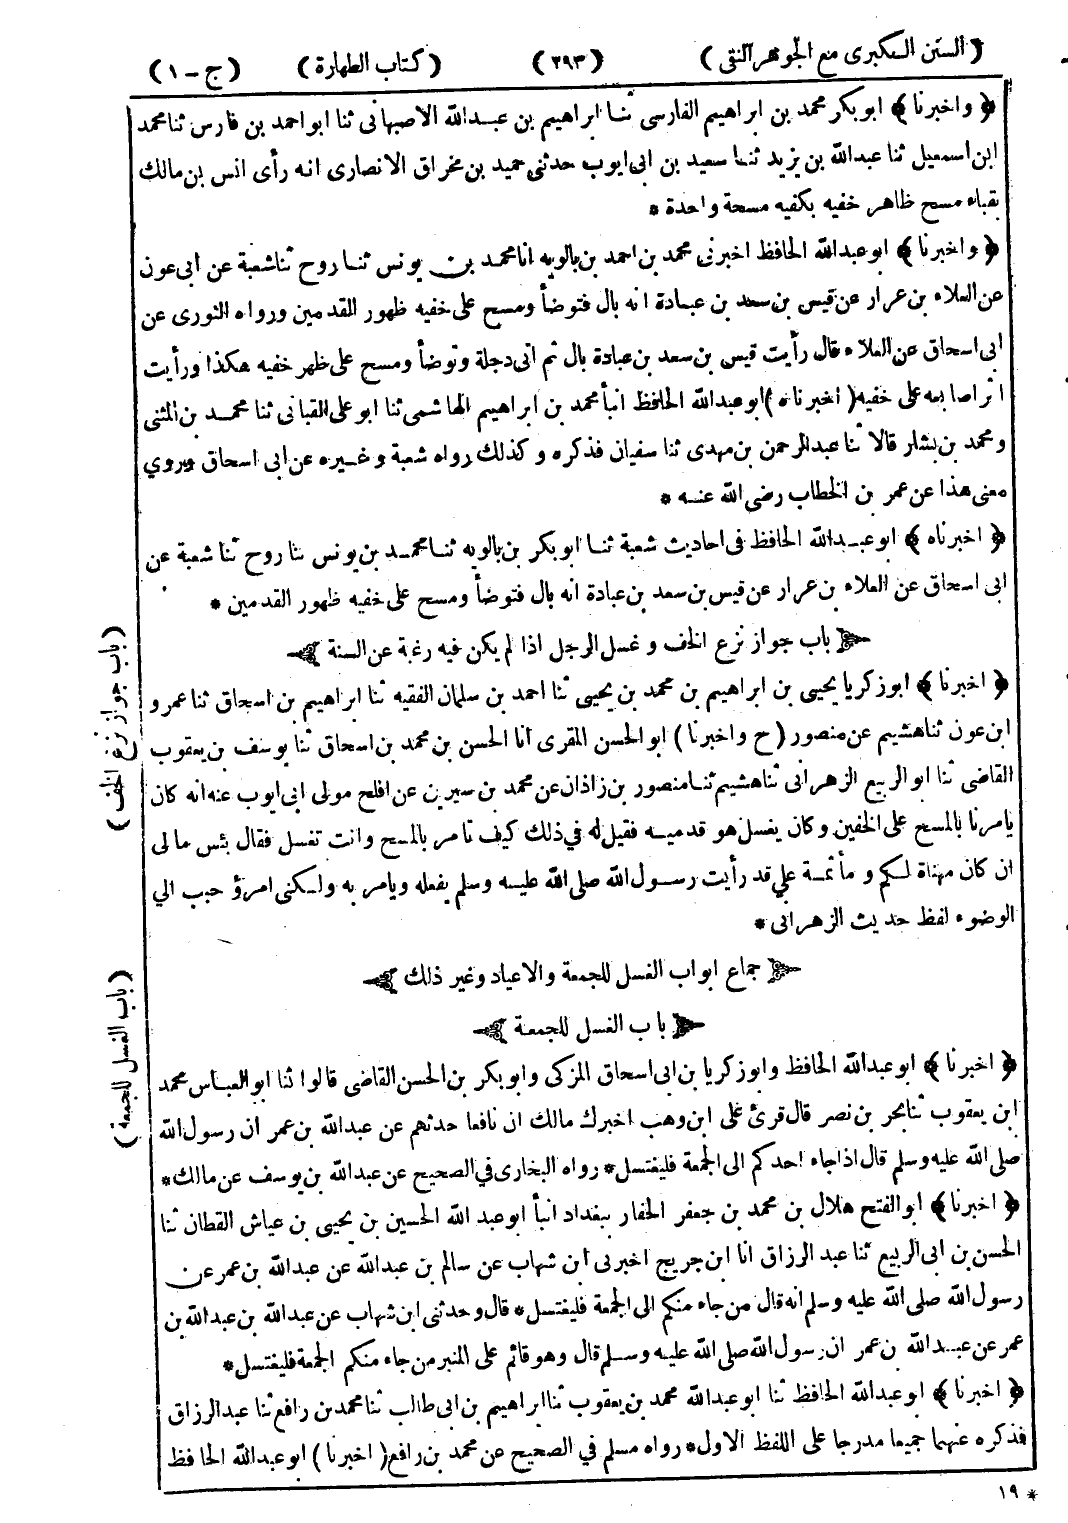 (السنن الكبرى مع الجوهر النقى) (٢٩٣) (كتاب الطهارة) (ج - ١)
﴿ واخبرنا ﴾ ابوبكر محمد بن ابراهيم الفارسى ثنا ابراهيم بن عبدالله الاصبهانى ثنا ابواحمد بن فارس ثنا محمد
ابن اسمعيل ثنا عبدالله بن يزيد ثنا سعيد بن ابى ايوب حدثنى حميد بن مخراق الانصارى انه رأى انس بن مالك
بقباء مسح ظاهر خفيه بكفيه مسحة واحدة *
﴿ واخبرنا ﴾ ابوعبدالله الحافظ اخبرنى محمد بن احمد بن بالويه انا محمد بن يونس ثنا روح ثنا شعبة عن ابى عون
عن العلاء بن عرار عن قيس بن سعد بن عبادة انه بال فتوضأ ومسح على خفيه ظهور القدمين ورواه الثورى عن
ابى اسحاق عن العلاء قال رأيت قيس بن سعد بن عبادة بال ثم اتى دجلة وتوضأ ومسح على ظهر خفيه هكذا ورأيت
اثر اصابعه على خفيه (اخبرناه) ابوعبدالله الحافظ انبأ محمد بن ابراهيم الهاشمى ثنا ابوعلى القبانى ثنا محمد بن المثنى
ومحمد بن بشار قالا ثنا عبدالرحمن بن مهدى ثنا سفيان فذكره وكذلك رواه شعبة وغيره عن ابى اسحاق ويروي
معنى هذا عن عمر بن الخطاب رضى الله عنه *
﴿ اخبرناه ﴾ ابوعبدالله الحافظ فى احاديث شعبة ثنا ابوبكر بن بالويه ثنا محمد بن يونس ثنا روح ثنا شعبة عن
ابى اسحاق عن العلاء بن عرار عن قيس بن سعد بن عبادة انه بال فتوضأ ومسح على خفيه ظهور القدمين *
باب جواز نزع الخف وغسل الرجل اذا لم يكن فيه رغبة عن السنة
(باب جواز نزع الخف)
﴿ اخبرنا ﴾ ابوزكريا يحيى بن ابراهيم بن محمد بن يحيى ثنا احمد بن سلمان الفقيه ثنا ابراهيم بن اسحاق ثنا عمرو
ابن عون ثنا هشيم عن منصور (ح واخبرنا) ابوالحسن المقرى انا الحسن بن محمد بن اسحاق ثنا يوسف بن يعقوب
القاضى ثنا ابوالربيع الزهرانى ثنا هشيم ثنا منصور بن زاذان عن محمد بن سيرين عن افلح مولى ابى ايوب عنه انه كان
يامرنا بالمسح على الخفين وكان يغسل هو قدميه فقيل له فى ذلك كيف تامر بالمسح وانت تغسل فقال بئس مالى
ان كان مهناة لكم ومأثمة علي قد رأيت رسول الله صلى الله عليه وسلم يفعله ويامر به ولكنى امرؤ حبب الي
الوضوء لفظ حديث الزهرانى *
جماع ابواب الغسل للجمعة والاعياد وغير ذلك
باب الغسل للجمعة
(باب الغسل للجمعة)
﴿ اخبرنا ﴾ ابوعبدالله الحافظ وابوزكريا بن ابى اسحاق المزكى وابوبكر بن الحسن القاضى قالوا ثنا ابوالعباس محمد
ابن يعقوب ثنا بحر بن نصر قال قرئ على ابن وهب اخبرك مالك ان نافعا حدثهم عن عبدالله بن عمر ان رسول الله
صلى الله عليه وسلم قال اذا جاء احدكم الى الجمعة فليغتسل * رواه البخارى في الصحيح عن عبدالله بن يوسف عن مالك *
﴿ اخبرنا ﴾ ابوالفتح هلال بن محمد بن جعفر الحفار ببغداد انبأ ابوعبد الله الحسين بن يحيى بن عياش القطان ثنا
الحسن بن ابى الربيع ثنا عبد الرزاق انا ابن جريج اخبرنى ابن شهاب عن سالم بن عبدالله عن عبدالله بن عمر عن
رسول الله صلى الله عليه وسلم انه قال من جاء منكم الى الجمعة فليغتسل * قال وحدثنى ابن شهاب عن عبدالله بن عبدالله بن
عمر عن عبدالله بن عمر ان رسول الله صلى الله عليه وسلم قال وهو قائم على المنبر من جاء منكم الجمعة فليغتسل *
﴿ اخبرنا ﴾ ابوعبدالله الحافظ ثنا ابوعبدالله محمد بن يعقوب ثنا ابراهيم بن ابى طالب ثنا محمد بن رافع ثنا عبدالرزاق
فذكره عنهما جميعا مدرجا على اللفظ الاول * رواه مسلم في الصحيح عن محمد بن رافع (اخبرنا) ابوعبدالله الحافظ
* ١٩